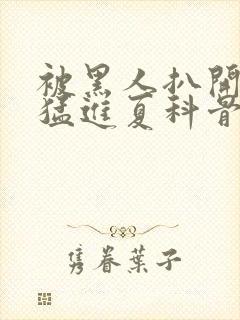 被黑人扒開
猛進夏科骨
隽眷葉子